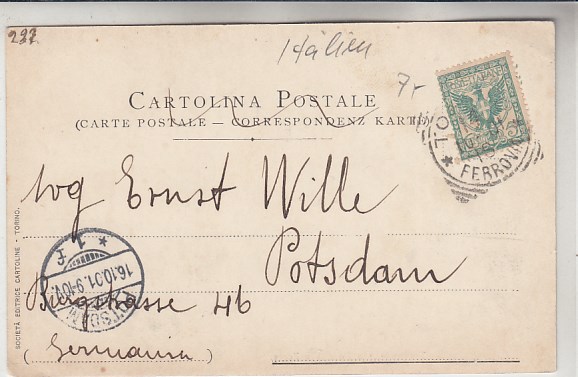 237
Italien
7-
CARTOLINA POSTALE
(CARTE POSTALE — CORRESPONDENZ KARTE)
POSTE ITALIANE
TO
FERROVIA
Ernst Wille
Potsdam
Burgstrasse 46
(Germania)
* 1 f
16.10.01.9-10V.
POTSDAM
SOCIETÀ EDITRICE CARTOLINE - TORINO.